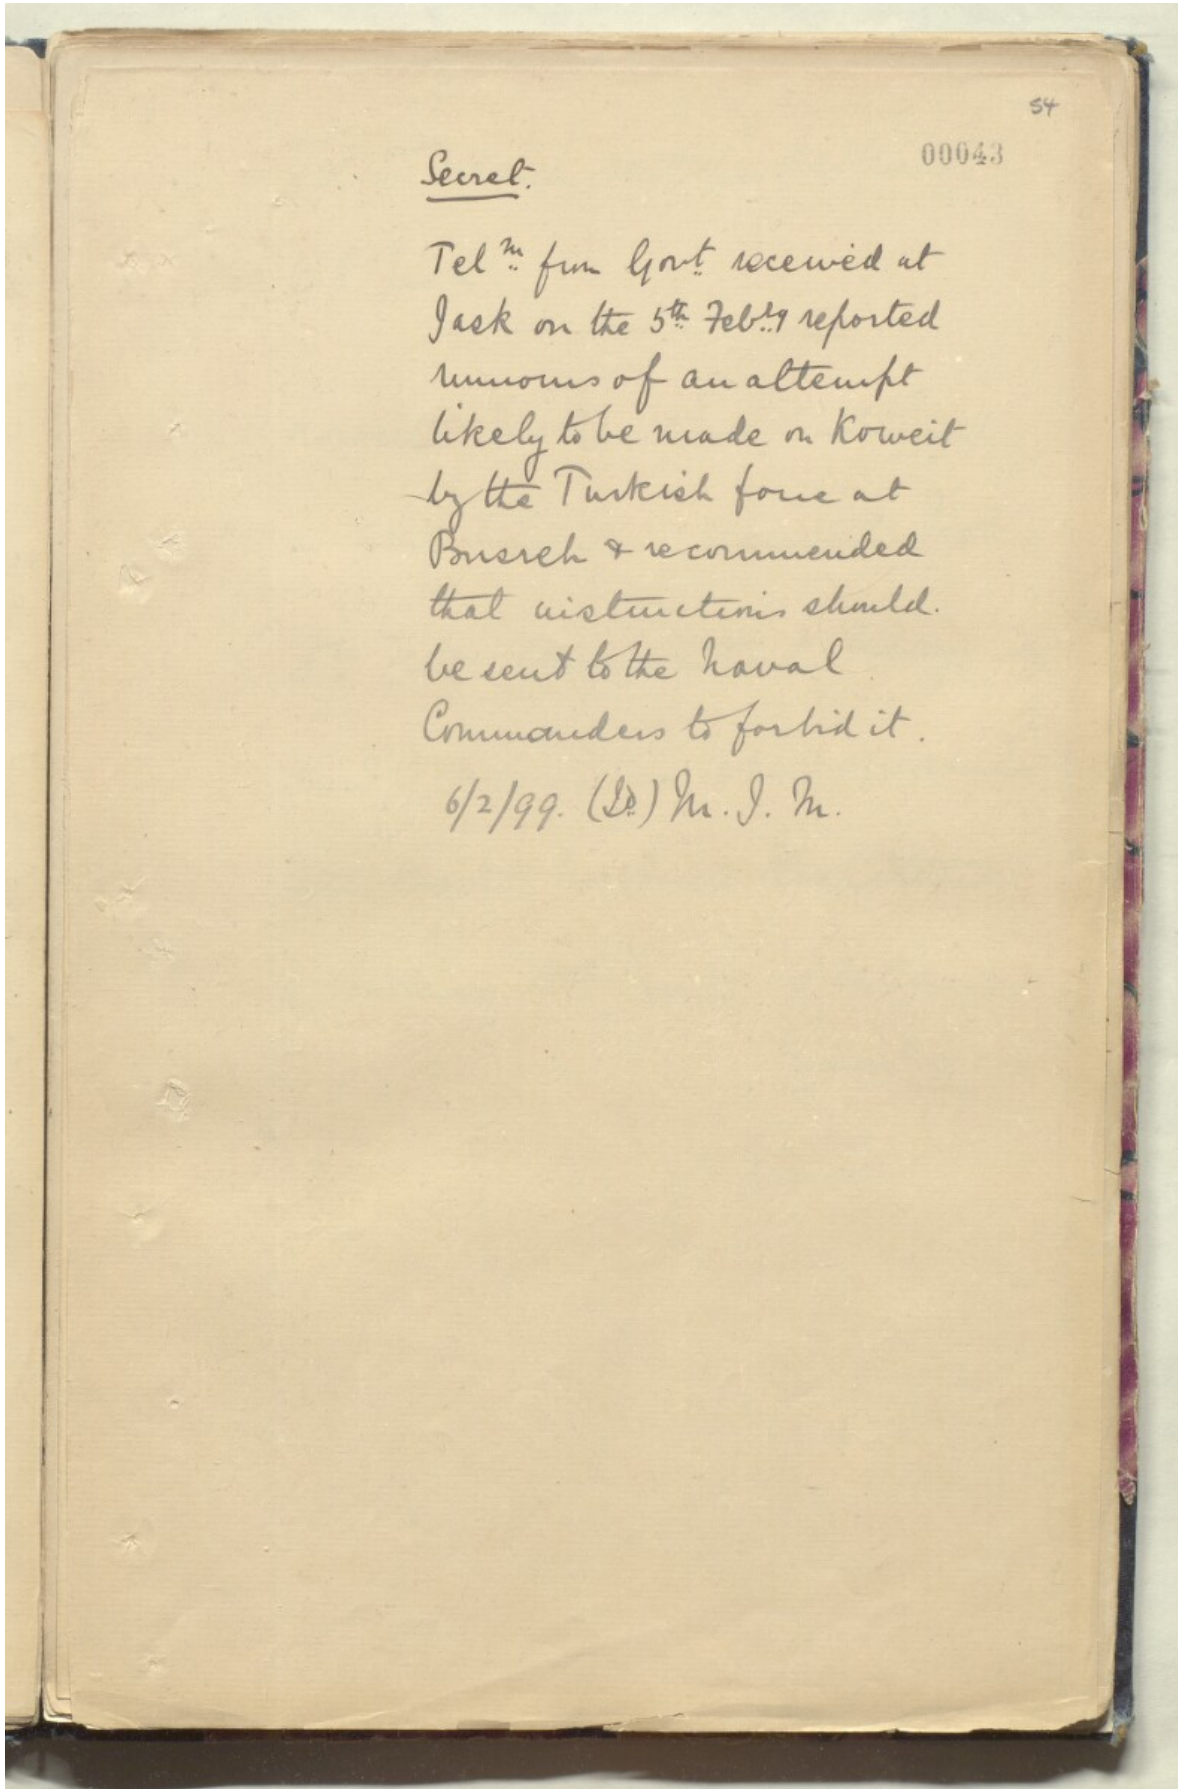 54
00043
Secret.
Telm from Govt received at
Jask on the 5th Febry reported
rumours of an attempt
likely to be made on Koweit
by the Turkish force at
Busreh & recommended
that instructions should
be sent to the Naval
Commanders to forbid it.
6/2/99. (Sd) M. J. M.